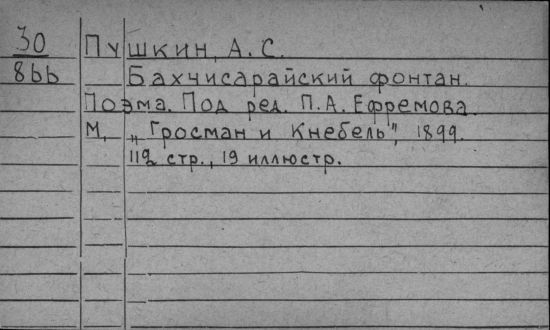 30 Пушкин, А. С.
866 Бахчисарайский фонтан.
Поэма. Под ред. П.А. Ефремова.
М., „Гросман и Кнебель", 1899.
112 стр., 19 иллюстр.